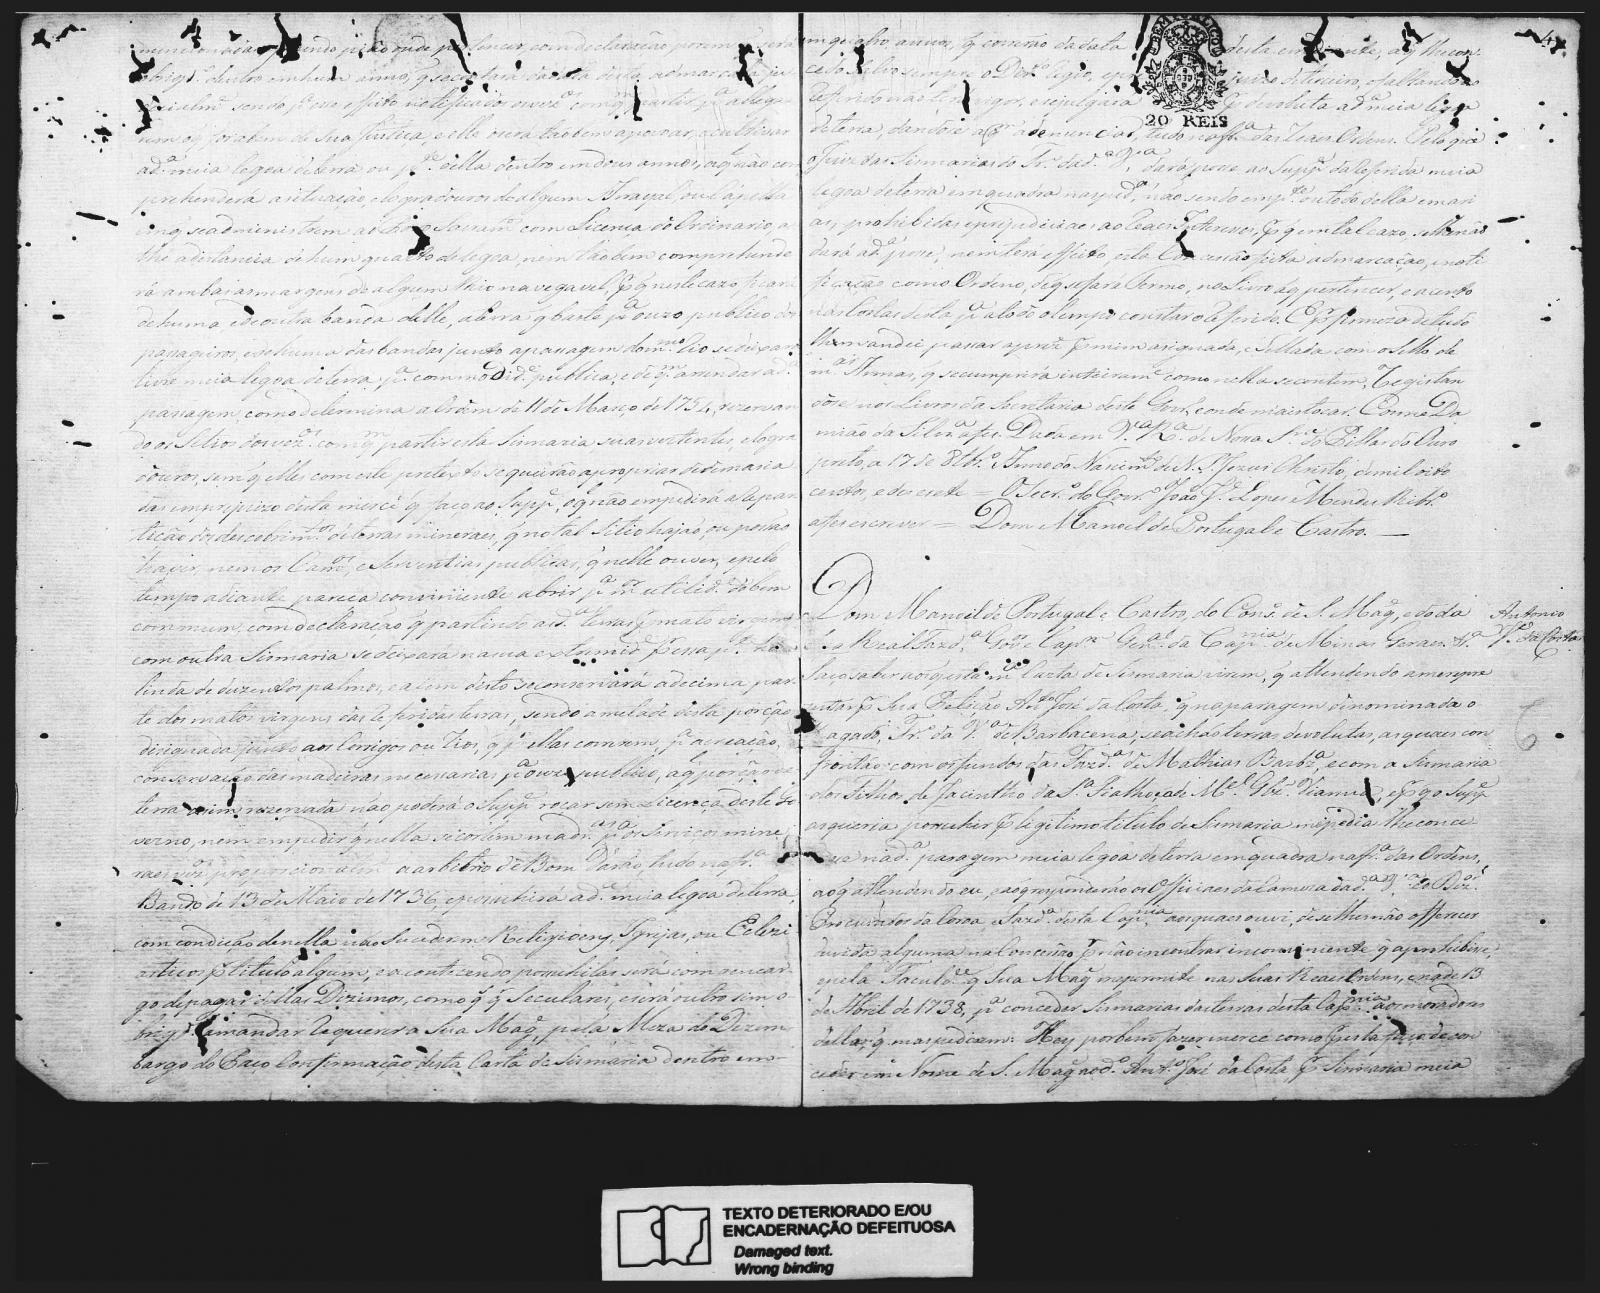 obrigº dentro em hum anno, q̃ se contará da data desta, a demarcar
judicialmᵉ sendo pª esse effeito notificados os vezºˢ com qᵐ partir, pª allegarem
o q̃ for a bem de sua Justiça, e elle o será tãobem a povoar, e cultivar
a dª meia legoa de terra ou pᵗᵉ della dentro em dous annos, a ql não com
prehenderá a situação, e logradouros de algum Arrayal, ou Capella
em q̃ se administrem ao Povo Sacramᵗᵒˢ com Licença do Ordinario, a
the a distancia de hum quarto de legoa, nem tãobem comprehende
rá ambas as margens de algum Rio navegavel, p̃ q̃ neste cazo ficará
de huma e de outra banda delle, a terra q̃ baste pª o uzo publico dos
passageiros, e de huma das bandas junto a passagem do mᵐᵒ Rio se deixará
livre meia legoa de terra, pª commodidᵉ publica, e de qᵐ arrendar a dª
passagem, como determina a Ordem de 11 de Março de 1754, rezervan
do os Sitios dos vezºˢ com qᵐ partir esta Sismaria suas vertentes, e logra
douros, sem q̃ elles com este pretexto se queirão apropriar de demasia
das em prejuizo desta mercê q̃ faço ao Suppᵉ, o ql não empedirá a repar
tição dos descobrimᵗᵒˢ de terras mineraes, q̃ no tal Sitio hajão, ou possão
haver, nem os Camºˢ, e Serventias publicas, q̃ nelle ouver, e pelo
tempo adiante pareça conveniente abrir pª mᵒʳ utilidᵉ do bem
commum, com declaração q̃ partindo a dª terra p̃ mato virgem
com outra Sismaria se deixará na sua extremidᵉ p̃ essa pᵗᵉ
linda de duzentos palmos, e alem disto se conservará a decima par
te dos matos virgens das referidas terras, sendo ametade desta porção
designada junto aos Corregos ou Rios, q̃ p̃ ellas correm, pª a creação,
e conservação das madeiras necessarias pª o uzo publico, a q̃ porção de
terra assim rezervada não poderá o Suppᵉ roçar sem Licença deste Go
verno, nem empedir q̃ nella se cortem madrªˢ pª os Serviços mine
raes vezºˢ proporcionalm a arbitrio de Bom Varão, tudo na frª do
Bando de 13 de Maio de 1736, e possuirá a dª meia legoa de terra,
com condição de nella não Sucederem Religioens, Igrejas, ou Eclezi
asticos p̃ titulo algum, e acontecendo possuhilas será com o encar
go de pagar dellas Dizimos, como q̃ q̃ Seculares, e será outro sim o
brigº a mandar requerer a Sua Magᵉ, pela Meza do Dezem
bargo do Paço Confirmação desta Carta de Sismaria dentro em
em quatro annos, q̃ correrão da data desta em diante, a ql lhe con
cedo Salvo sempre o Dirᵗᵒ Regio, e juizo de terceiro, e faltando ao
referido não terá vigor, e se julgará p̃ devoluta a dª meia legoa
de terra, dando-se a qᵐ a denunciar, tudo na frª das Reaes Ordens. Pelo que
o Juiz das Sismarias do Trº da dª Vª, dará posse ao Suppᵉ da referida meia
legoa de terra em quadra na refidª, não sendo em pᵗᵉ ou todo della em ari
as, prohibidas e prejudiciaes aos Reaes Interesses, p̃ q̃ em tal cazo, se lhe não
dará a dª posse, nem terá effeito esta Concessão feita a demarcação, e noti
ficação como Ordeno, de q̃ se fará Termo, no Livro a q̃ pertencer, e assento
nas Costas desta pª a todo o tempo constar o referido. E p̃ firmeza de tudo
lhe mandei passar a prezᵉ p̃ mim assignada, e Sellada com o Sello de
mᵃˢ Armas, q̃ se cumprirá inteiramᵉ como nella se contem, Registan
dose nos Livros da Secretaria deste Govᵒ, e onde mais tocar. Cosme Da
mião da Silvª a fes. Dada em Vª Rª de Nossa Srª do Pillar do Ouro
preto, a 17 de 8brº, Anno do Nascimᵗᵒ de N. Sʳ Jezus Christo, de mil oito
centos, e dezesete = O Secrº do Govrº João Jᵉ Lopes Mendes Ribrº
a fes escrever = Dom Manoel de Portugal e Castro. —
Dom Manoel de Portugal e Castro, do Consº de S. Magᵉ, e do da
sua Real Fazdª Govᵒʳ e Capᵐ Genᵃˡ da Capⁿⁱᵃ de Minas Geraes &ª
Faço saber aos q̃ esta mª Carta de Sismaria virem, q̃ attendendo a me repre
zentar p̃ Sua Petição Antº José da Costa, q̃ na paragem denominada o
Lagado, Trº da Vª de Barbacena, se achão terras devolutas, as quaes con
frontão com os fundos das Fazdªˢ de Mathias Barbª, e com a Sismaria
dos Filhos de Jacintho da Sª Fialho, e de Mᵉˡ Glz Vianna, e p̃ q̃ o Suppᵉ
as queria possuhir p̃ legitimo titulo de Sismaria me pedia lhe conce
desse na dª paragem meia legoa de terra em quadra na frª das Ordens,
ao q̃ attendendo eu, e ao q̃ responderão os Officiaes da Camera da dª Vª, e o Dezᵒʳ
Procurador da Coroa, e Fazdª desta Capⁿⁱᵃ aos quaes ouvi, de se lhes não offerecer
duvida alguma na Concessão p̃ não incontrar inconveniente q̃ a prohibisse,
e pela Faculdᵉ q̃ Sua Magᵉ me permite nas suas Reaes Ordens, e na de 13
de Abril de 1738, pª conceder Sismarias das terras desta Capⁿⁱᵃ aos moradores
della, q̃ mas pedirem: Hey por bem fazer merce como p̃ esta faço de con
ceder em Nome de S. Magᵉ ao dº Antº José da Costa, p̃ Sismaria meia
Antonio
Jᵉ da Costa
20 REIS
TEXTO DETERIORADO E/OU
ENCADERNAÇÃO DEFEITUOSA
Damaged text.
Wrong binding